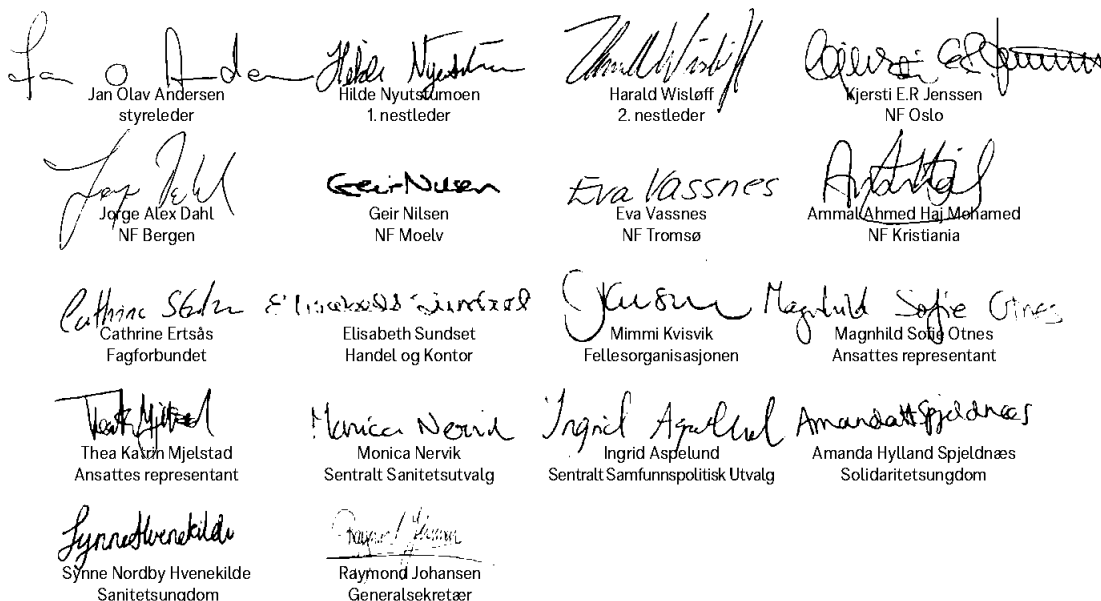 Jan Olav Andersen
styreleder
Hilde Nyutstumoen
1. nestleder
Harald Wisløff
2. nestleder
Kjersti E.R Jenssen
NF Oslo
Jorge Alex Dahl
NF Bergen
Geir Nilsen
Geir Nilsen
NF Moelv
Eva Vassnes
Eva Vassnes
NF Tromsø
Ammal Ahmed Haj Mohamed
NF Kristiania
Cathrine Ertsås
Fagforbundet
Elisabeth Sundset
Handel og Kontor
Mimmi Kvisvik
Fellesorganisasjonen
Magnhild Sofie Otnes
Magnhild Sofie Otnes
Ansattes representant
Thea Katrin Mjelstad
Ansattes representant
Monica Nervik
Sentralt Sanitetsutvalg
Ingrid Aspelund
Sentralt Samfunnspolitisk Utvalg
Amanda Hylland Spjeldnæs
Solidaritetsungdom
Synne Nordby Hvenekilde
Sanitetsungdom
Raymond Johansen
Generalsekretær